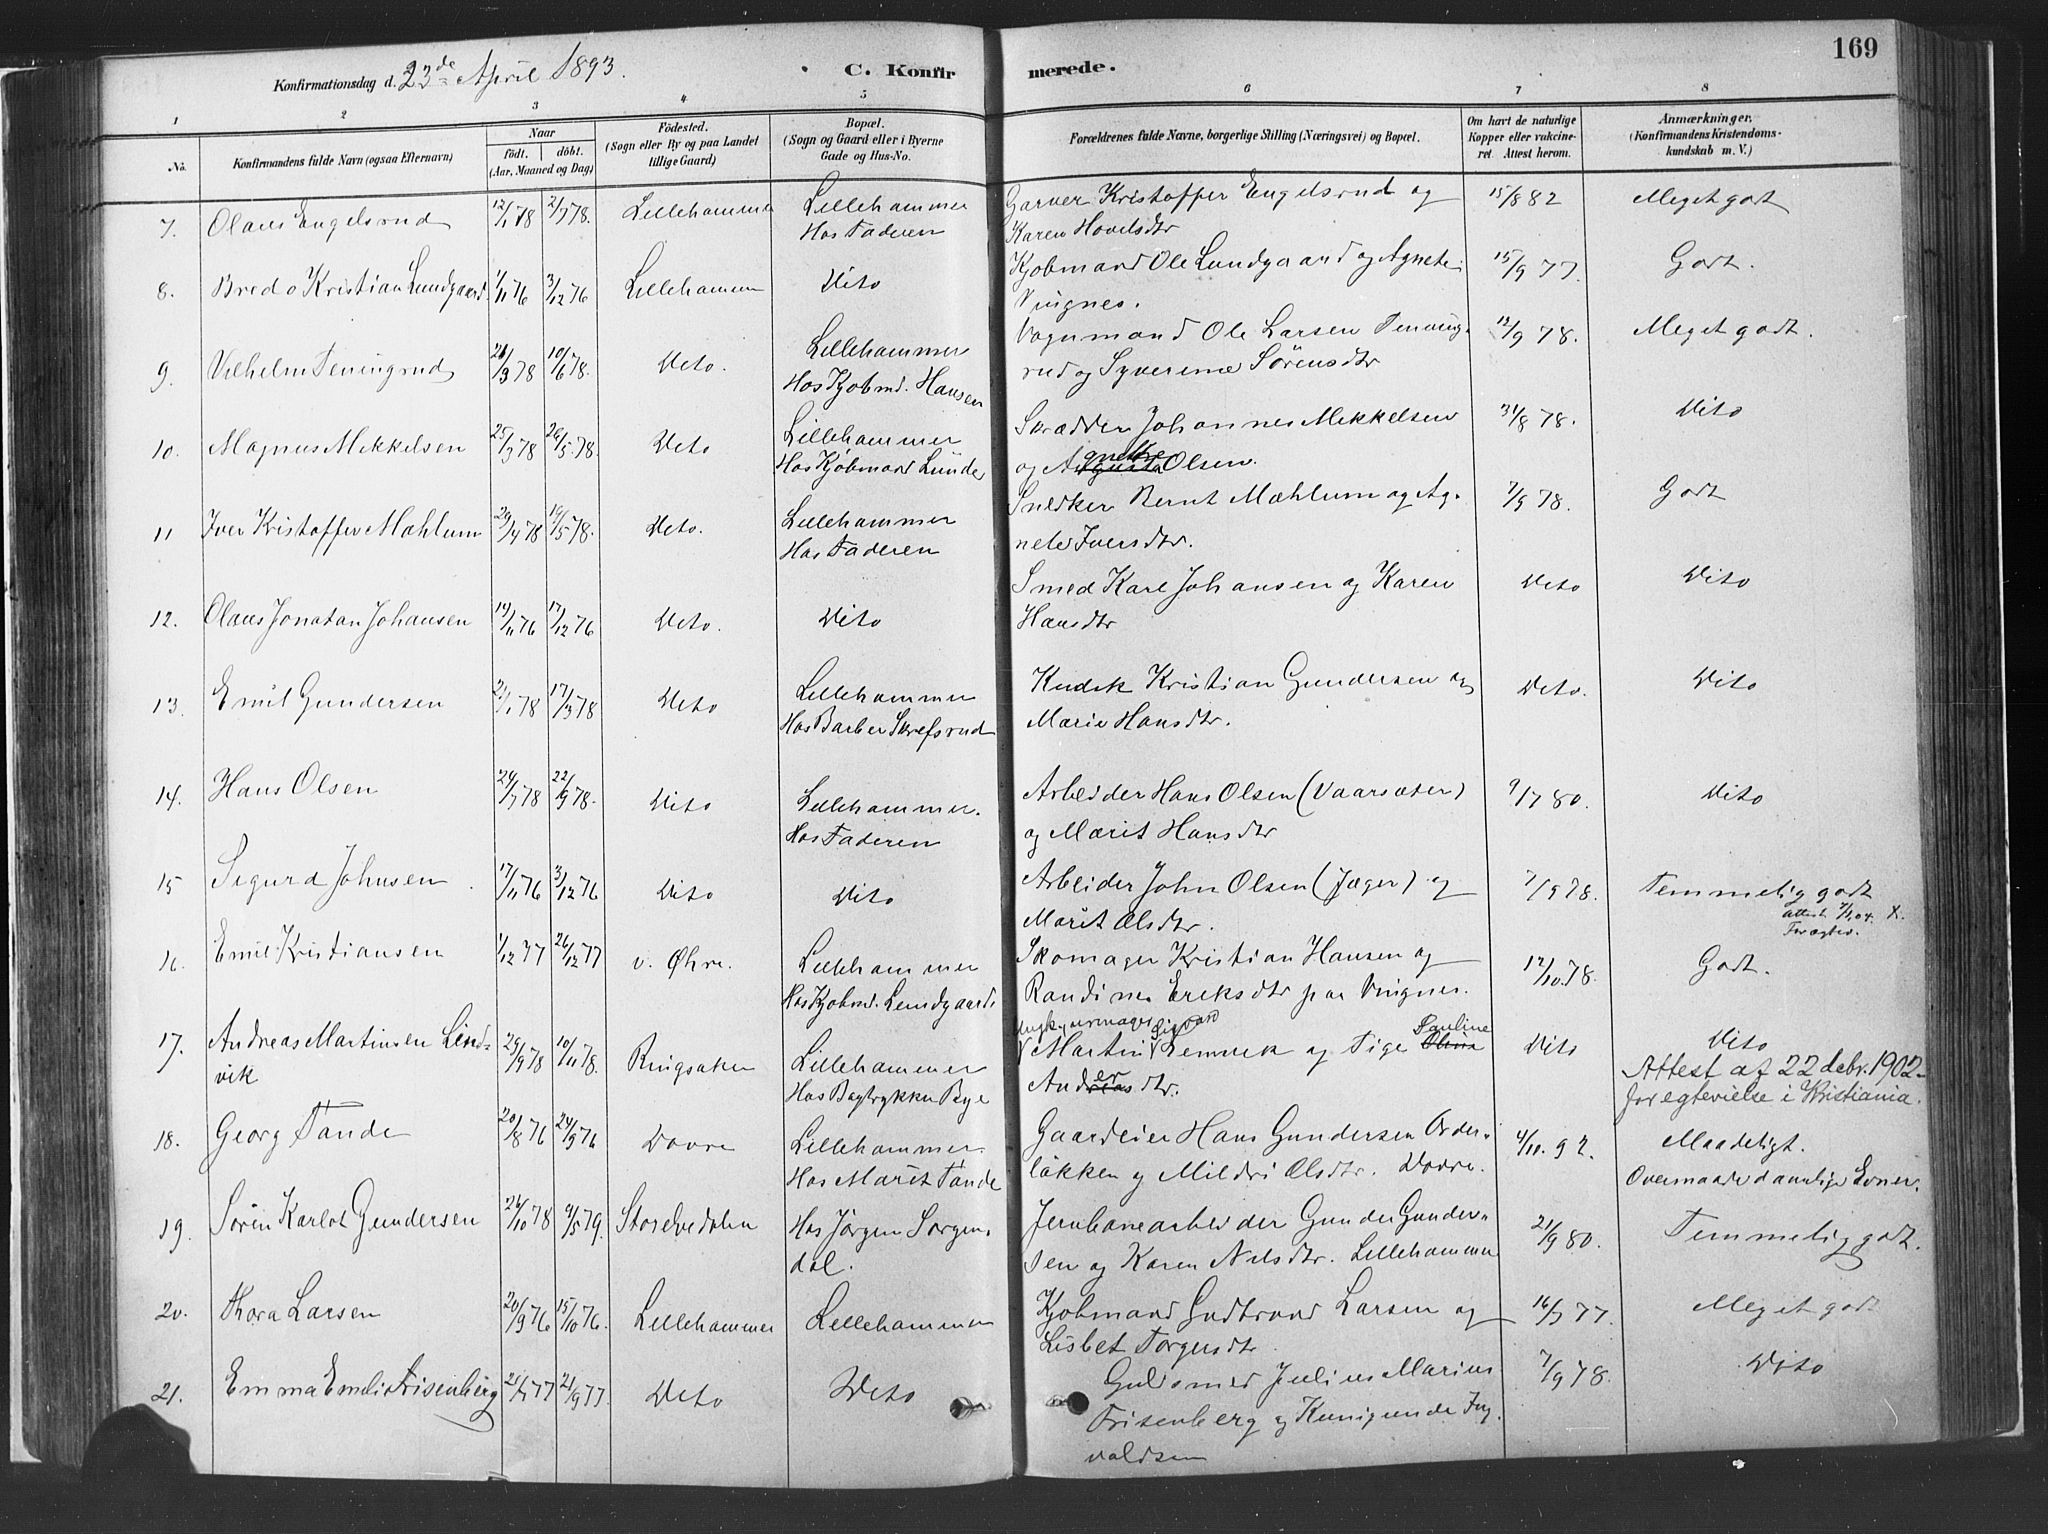 169
Konfirmationsdag d. 23de April 1893.
C. Konfirmerede.
1 2 3 4 5 6 7 8
No.
Konfirmandens fulde Navn (ogsaa Efternavn)
Naar
födt. döbt.
(Aar, Maaned og Dag)
Födested.
(Sogn eller By og paa Landet
tillige Gaard)
Bopæl.
(Sogn og Gaard eller i Byerne
Gade og Hus-No.
Forældrenes fulde Navne, borgerlige Stilling (Næringsvei) og Bopæl.
Om havt de naturlige
Kopper eller vakcine-
ret. Attest herom.
Anmærkninger.
(Konfirmandens Kristendoms-
kundskab m. V.)
7. Olaus Engelsrud 12/1 78 2/7 78. Lillehammer Lillehammer Garver Kristoffer Engelsrud og 15/8 82 Meget godt
Hos Faderen Karen Hovelsdtr
8. Bredo Kristian Lundgaard 1/11 76 3/12 76 Lillehammer Dito Kjøbmand Ole Lundgaard og Agnete 15/9 77. Godt.
Vingnes.
9. Vilhelm Teningrud 21/3 78 10/6 78. Dito. Lillehammer Vognmand Ole Larsen Tening- 12/9 78. Meget godt.
Hos Kjøbmd. Hansen rud og Syverine Sørensdtr
10. Magnus Mekkelsen 25/3 78 26/5 78. Dito Lillehammer Skrædder Johannes Mekkelsen 31/8 78. Dito
Hos Kjøbmand Lunde og Agnethe Olsen.
11 Iver Kristoffer Mæhlum 29/4 78 19/5 78. Dito. Lillehammer Snedker Bernt Mæhlum og Ag- 7/9 78. Godt
Hos Faderen nete Iversdtr.
12. Olaus Jonatan Johansen 19/11 76 17/12 76 Dito. Dito Smed Karl Johansen og Karen Dito Dito
Hansdtr
13. Emil Gundersen 21/1 78 17/3 78 Dito Lillehammer Kudsk Kristian Gundersen og Dito. Dito
Hos Barber Skrefsrud Marie Hansdtr.
14. Hans Olsen 24/7 78 22/9 78. Dito Lillehammer. Arbeider Hans Olsen (Vaarsæter) 9/7 80. Dito
Hos Faderen og Marit Hansdtr
15 Sigurd Johnsen 17/11 76 3/12 76 Dito Dito Arbeider John Olsen (Jæger) og 7/9 78. Temmelig godt
Marit Olsdtr. Attest 7/1 04. X.
For ægtev.
16. Emil Kristiansen 1/12 77 26/12 77 v. Øhre. Lillehammer Skomager Kristian Hansen og 12/10 78. Godt.
Hos Kjøbmd. Lundgaard Randine Eriksdtr paa Vingnes.
17. Andreas Martinsen Lind- 29/9 78 10/11 78. Ringsaker Lillehammer Ungk., urmager Martin Sigvard og Pige Pauline Olivia Dito Dito
vik Hos Bogtrykker Bye Andersdtr. Attest af 22 debr. 1902
for egtevielse i Kristiania.
18. Georg Tande 20/8 76 24/9 76 Dovre Lillehammer Gaardeier Hans Gundersen Order- 4/10. 92. Maadeligt.
Hos Marit Tande løkken og Mildri Olsdtr. Dovre. Overmaade daarlige Evner.
19. Sören Karlot Gundersen 26/10 78 4/5 79. Storelvedalen Hos Jørgen Sorgen- Jernbanearbeider Gunder Gunder- 21/9 80. Temmelig godt.
dal. sen og Karen Nilsdtr. Lillehammer
20. Thora Larsen 20/9 76 15/10 76. Lillehammer Lillehammer Kjøbmand Gudbrand Larsen og 16/7 77. Meget godt
Lisbet Torgersdtr
21. Emma Emelie Frisenberg 21/7 77 21/9 77. Dito Dito Guldsmed Julius Marius 7/9 78. Dito
Frisenberg og Kunigunde Ing-
valdsen